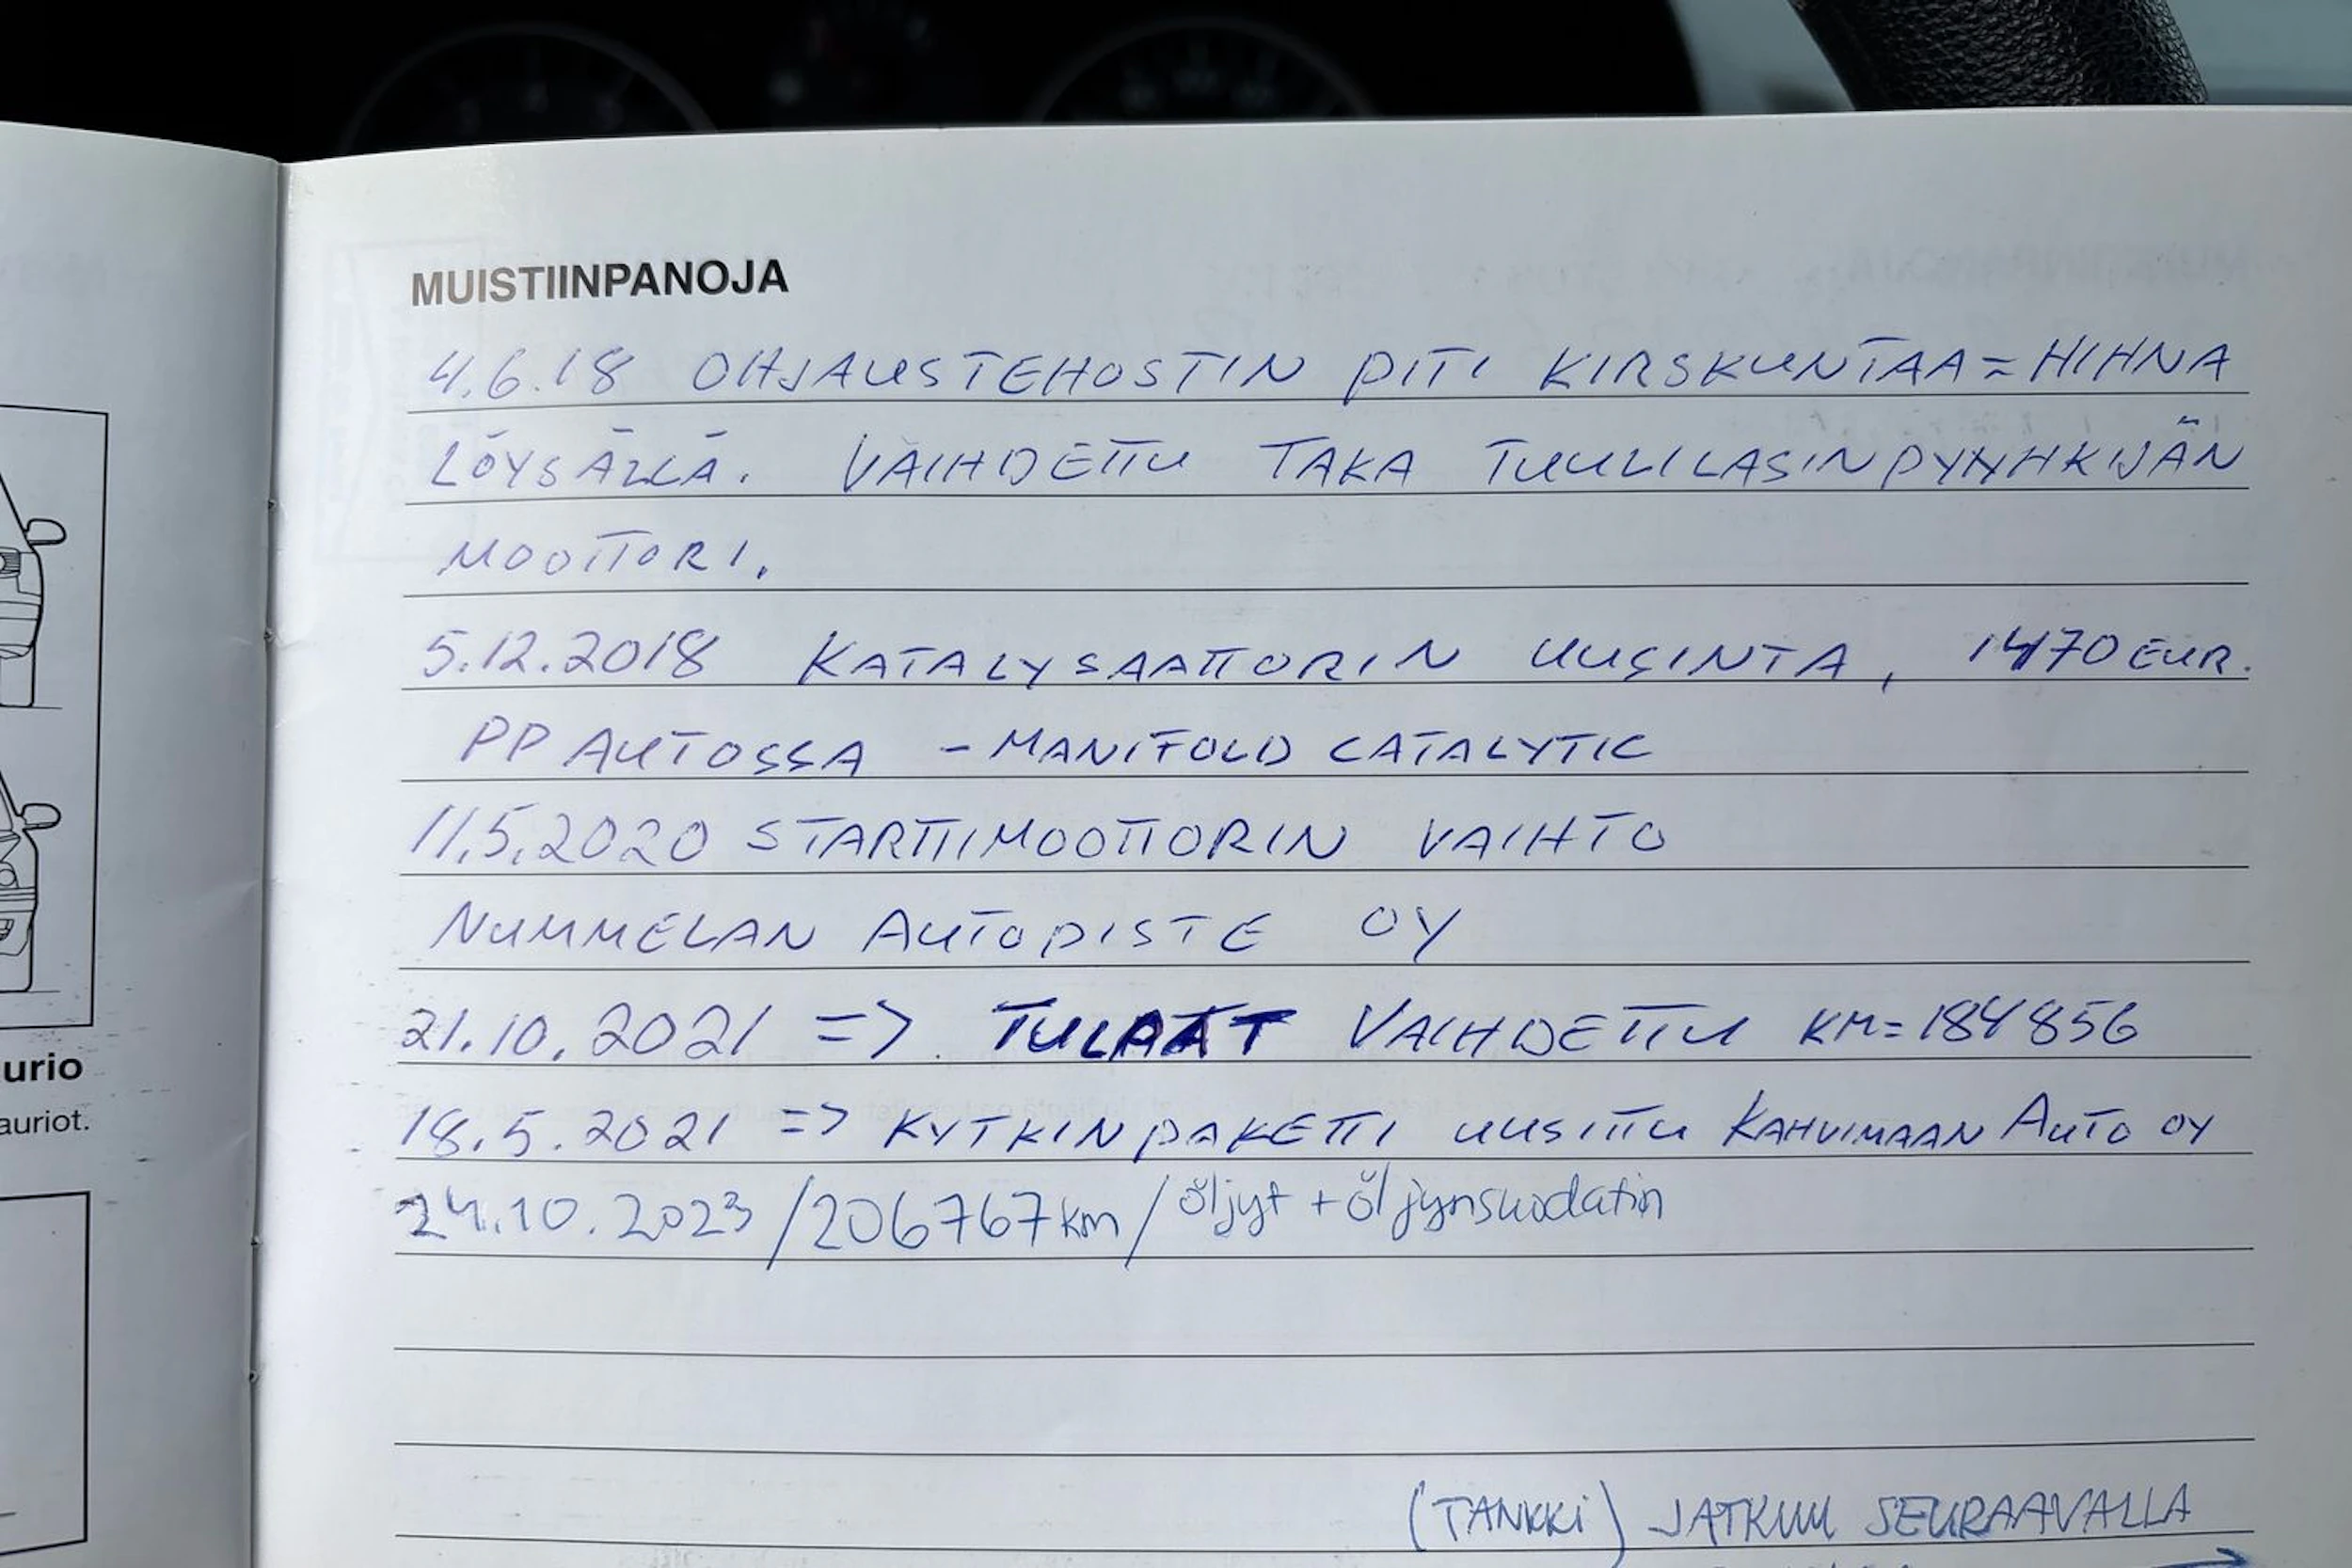 MUISTIINPANOJA
4.6.18 OHJAUSTEHOSTIN PITI KIRSKUNTAA = HIHNA
LÖYSÄLLÄ. VAIHDETTU TAKA TUULILASINPYYHKIJÄN
MOOTTORI.
5.12.2018 KATALYSAATTORIN UUSINTA, 1470 EUR.
PP AUTOSSA - MANIFOLD CATALYTIC
11.5.2020 STARTTIMOOTTORIN VAIHTO
NUMMELAN AUTOPISTE OY
21.10.2021 => TULPAT VAIHDETTU KM=184856
18.5.2021 => KYTKINPAKETTI UUSITTU KAHVIMAAN AUTO OY
24.10.2023 / 206767km / öljyt + öljynsuodatin
(TANKKI) JATKUU SEURAAVALLA
urio
auriot.